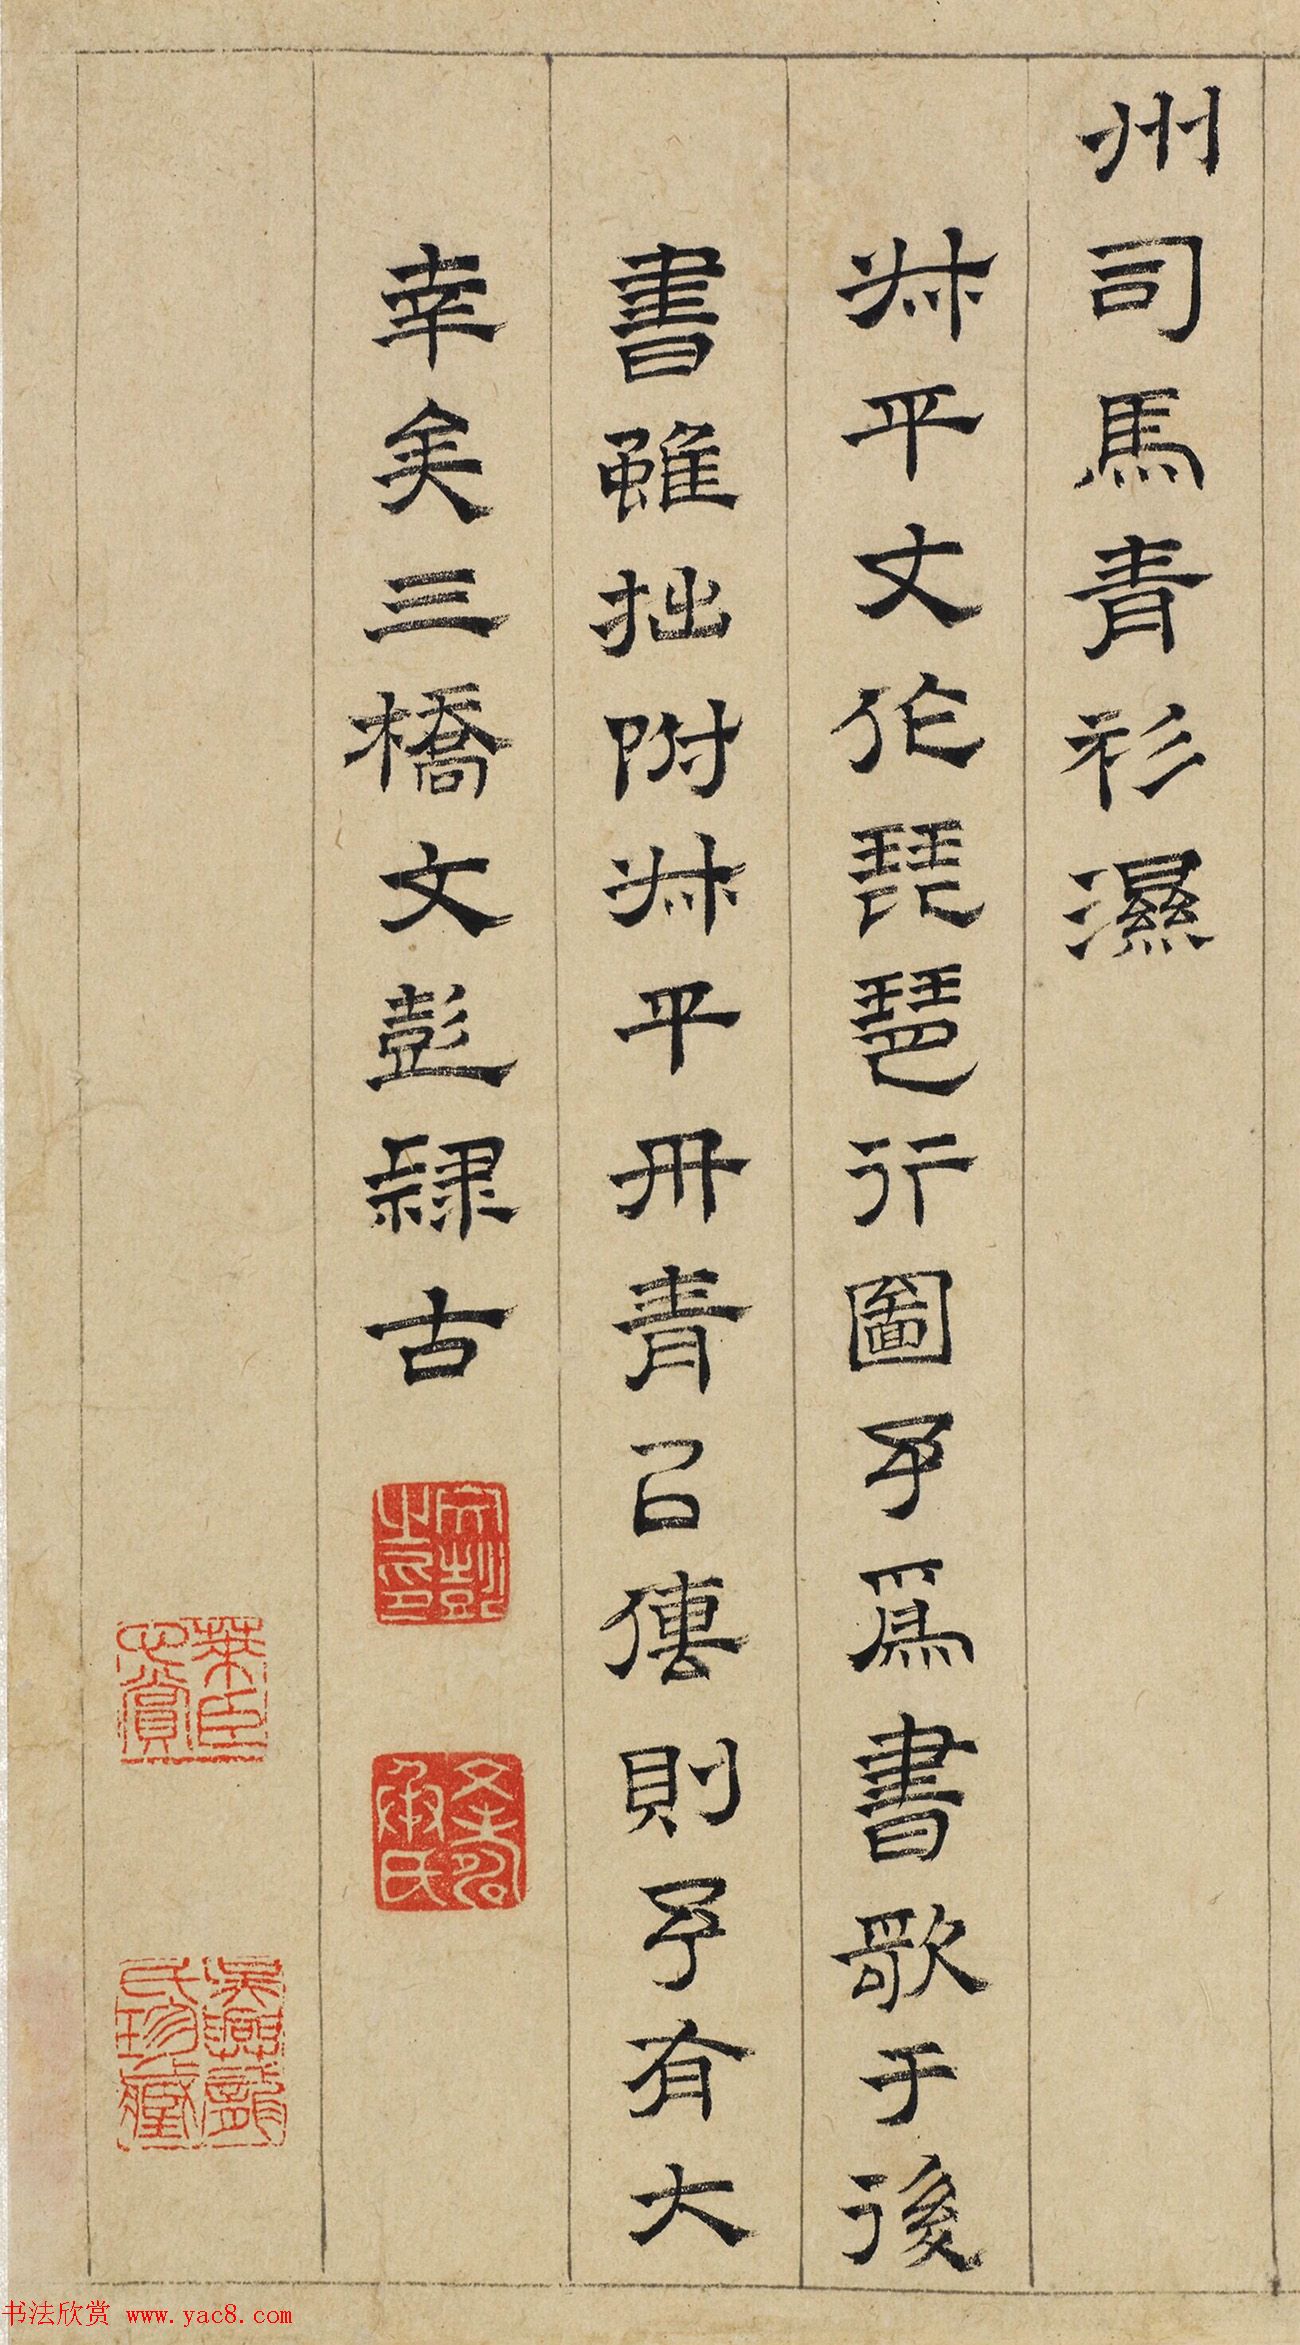 州司馬青衫濕
叔平丈作琵琶行圖予爲書歌于後
書雖拙附叔平丹青以傳則予有大
幸矣三橋文彭隸古
文彭之印
文壽承氏
萊臣心賞
吳興龐氏珍藏
书法欣赏 www.yac8.com